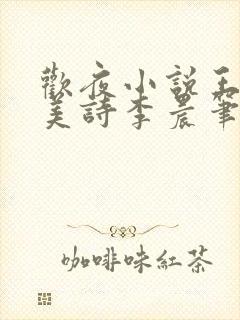 歡夜小說王
美詩李晨筆
咖啡味紅茶